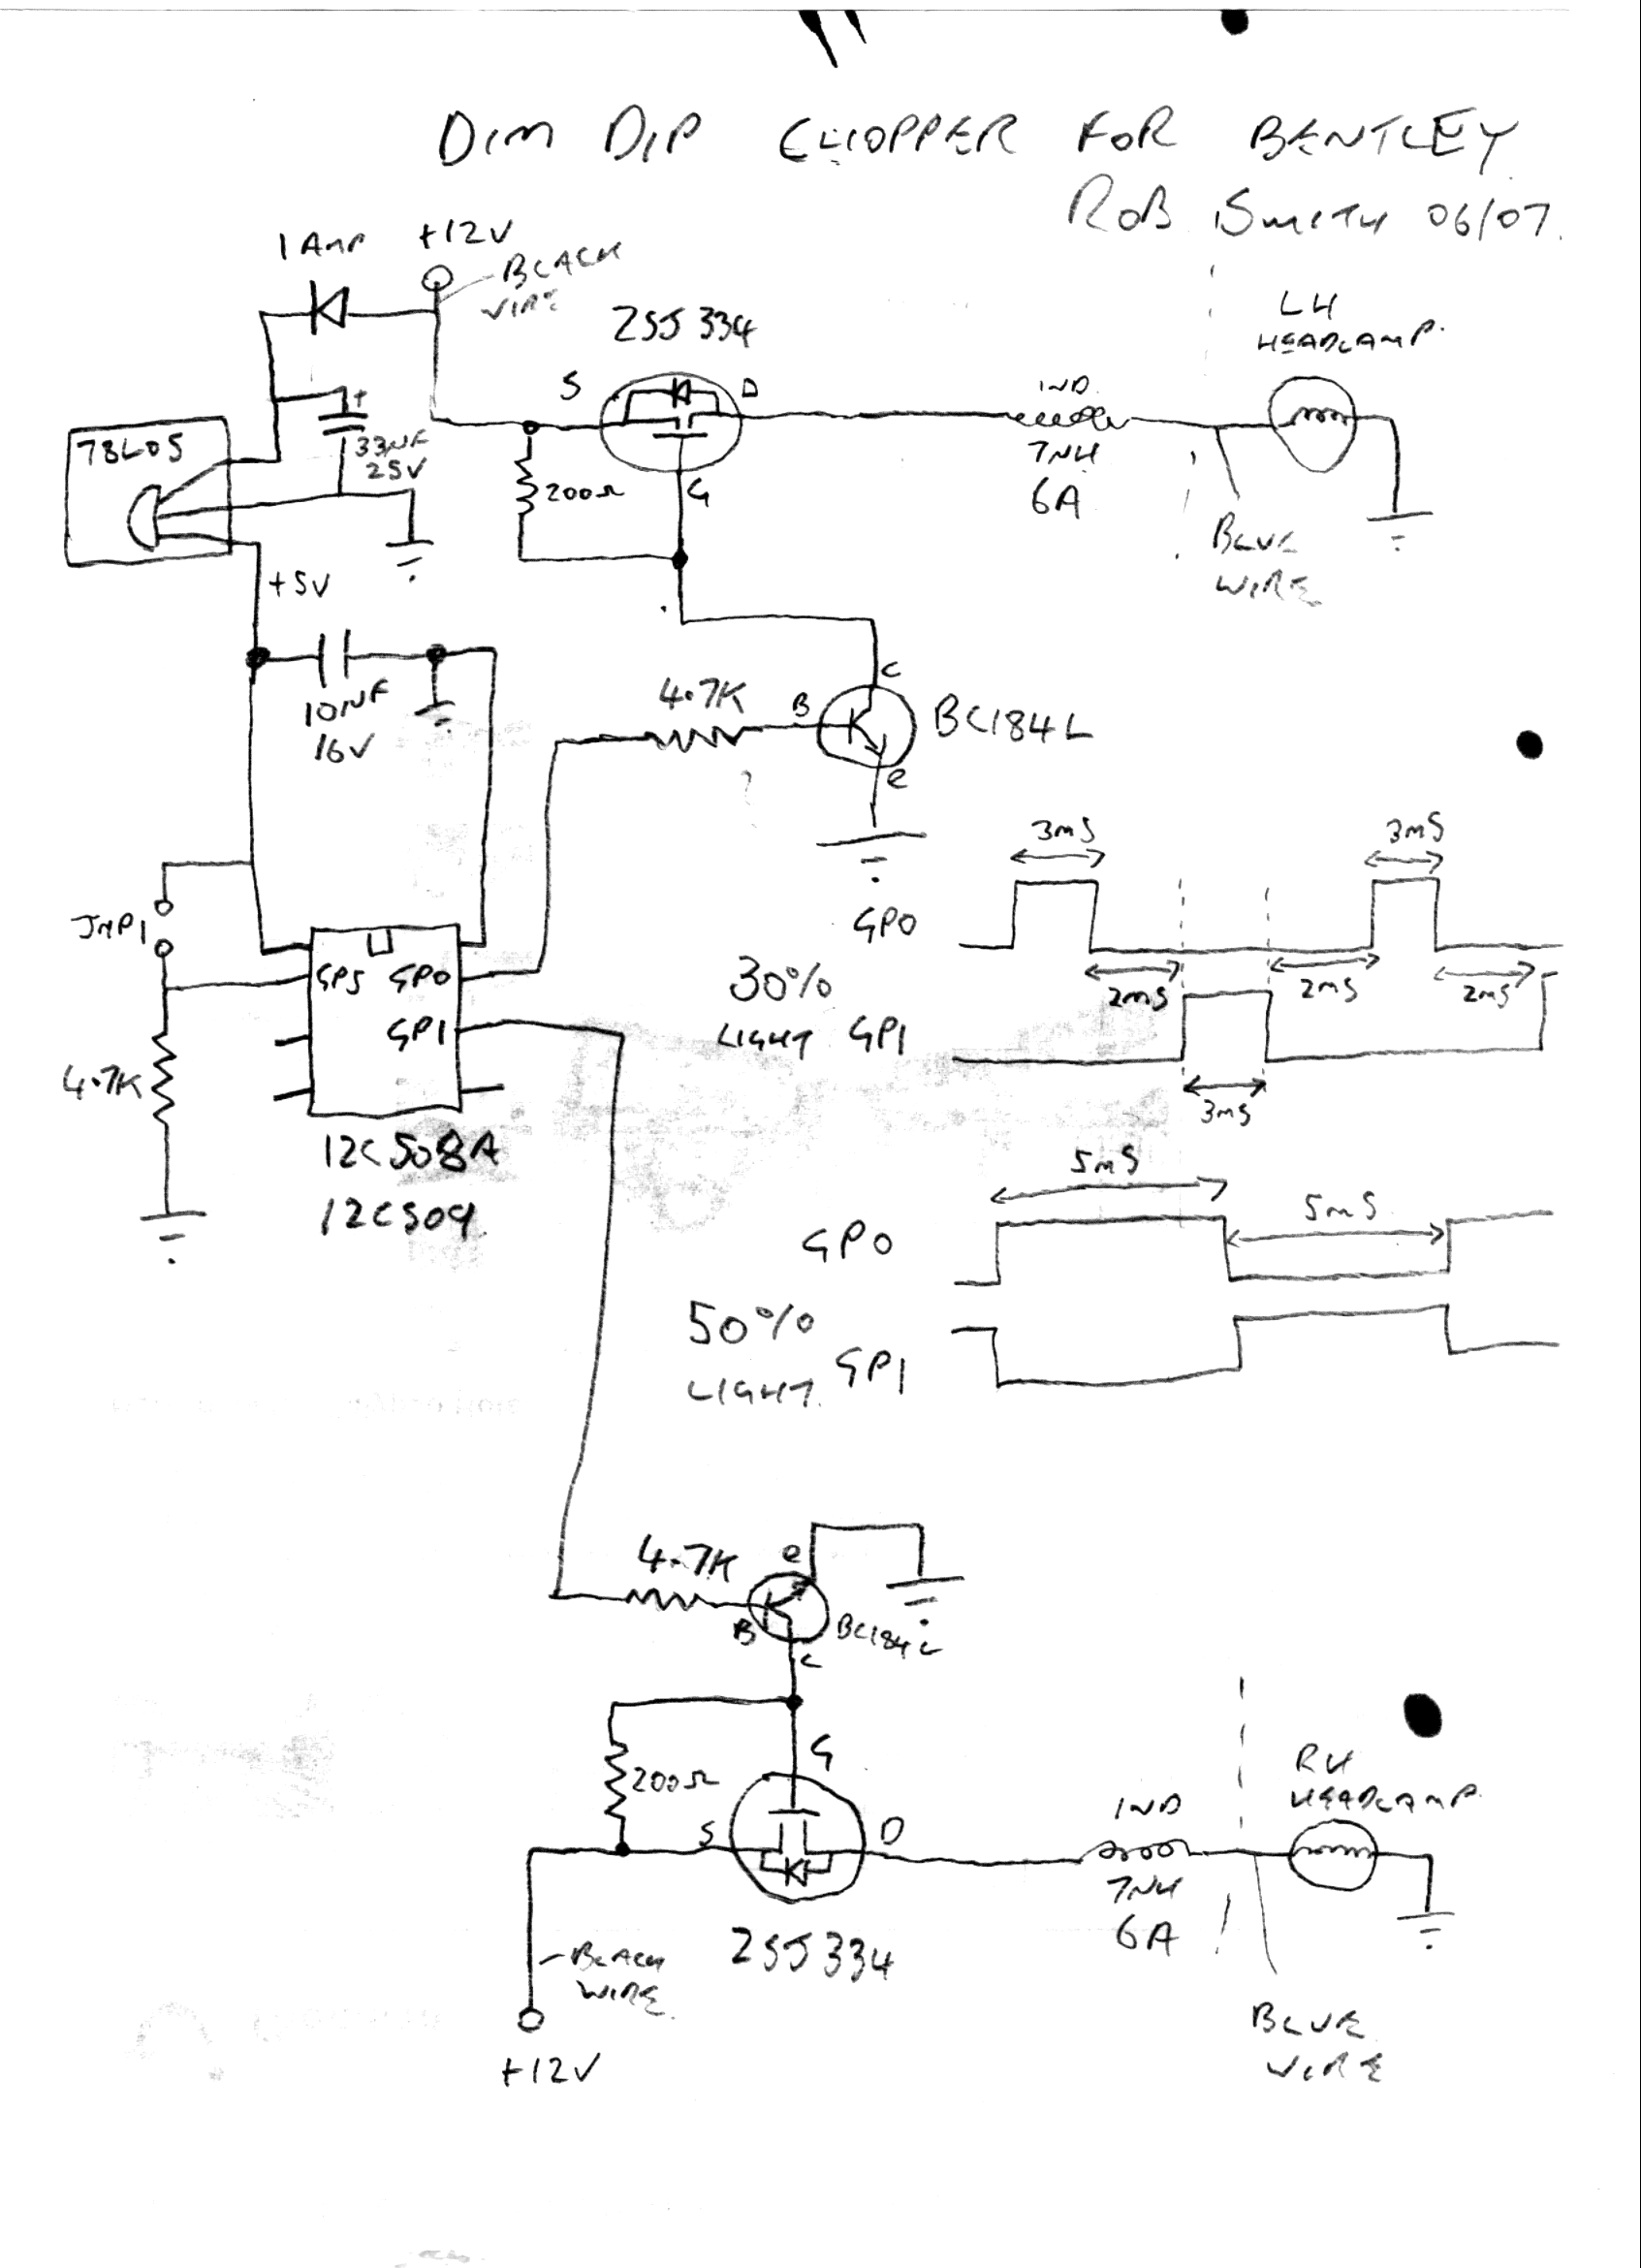 DIM DIP CHOPPER FOR BENTLEY
ROB SMITH 06/07.
1 AMP
+12V
BLACK
WIRE
2SJ334
LH
HEADLAMP.
S
D
G
IND.
7µH
6A
BLUE
WIRE
78L05
+
33µF
25V
200Ω
+5V
10µF
16V
4.7K
B
C
e
BC184L
JMP1
GP5
GP0
GP1
4.7K
12C508A
12C509
3mS
3mS
GP0
2mS
2mS
2mS
30%
LIGHT
GP1
3mS
5mS
5mS
GP0
50%
LIGHT.
GP1
4.7K
e
B
C
BC184L
G
200Ω
S
D
IND
7µH
6A
RH
HEADLAMP.
2SJ334
BLACK
WIRE
+12V
BLUE
WIRE